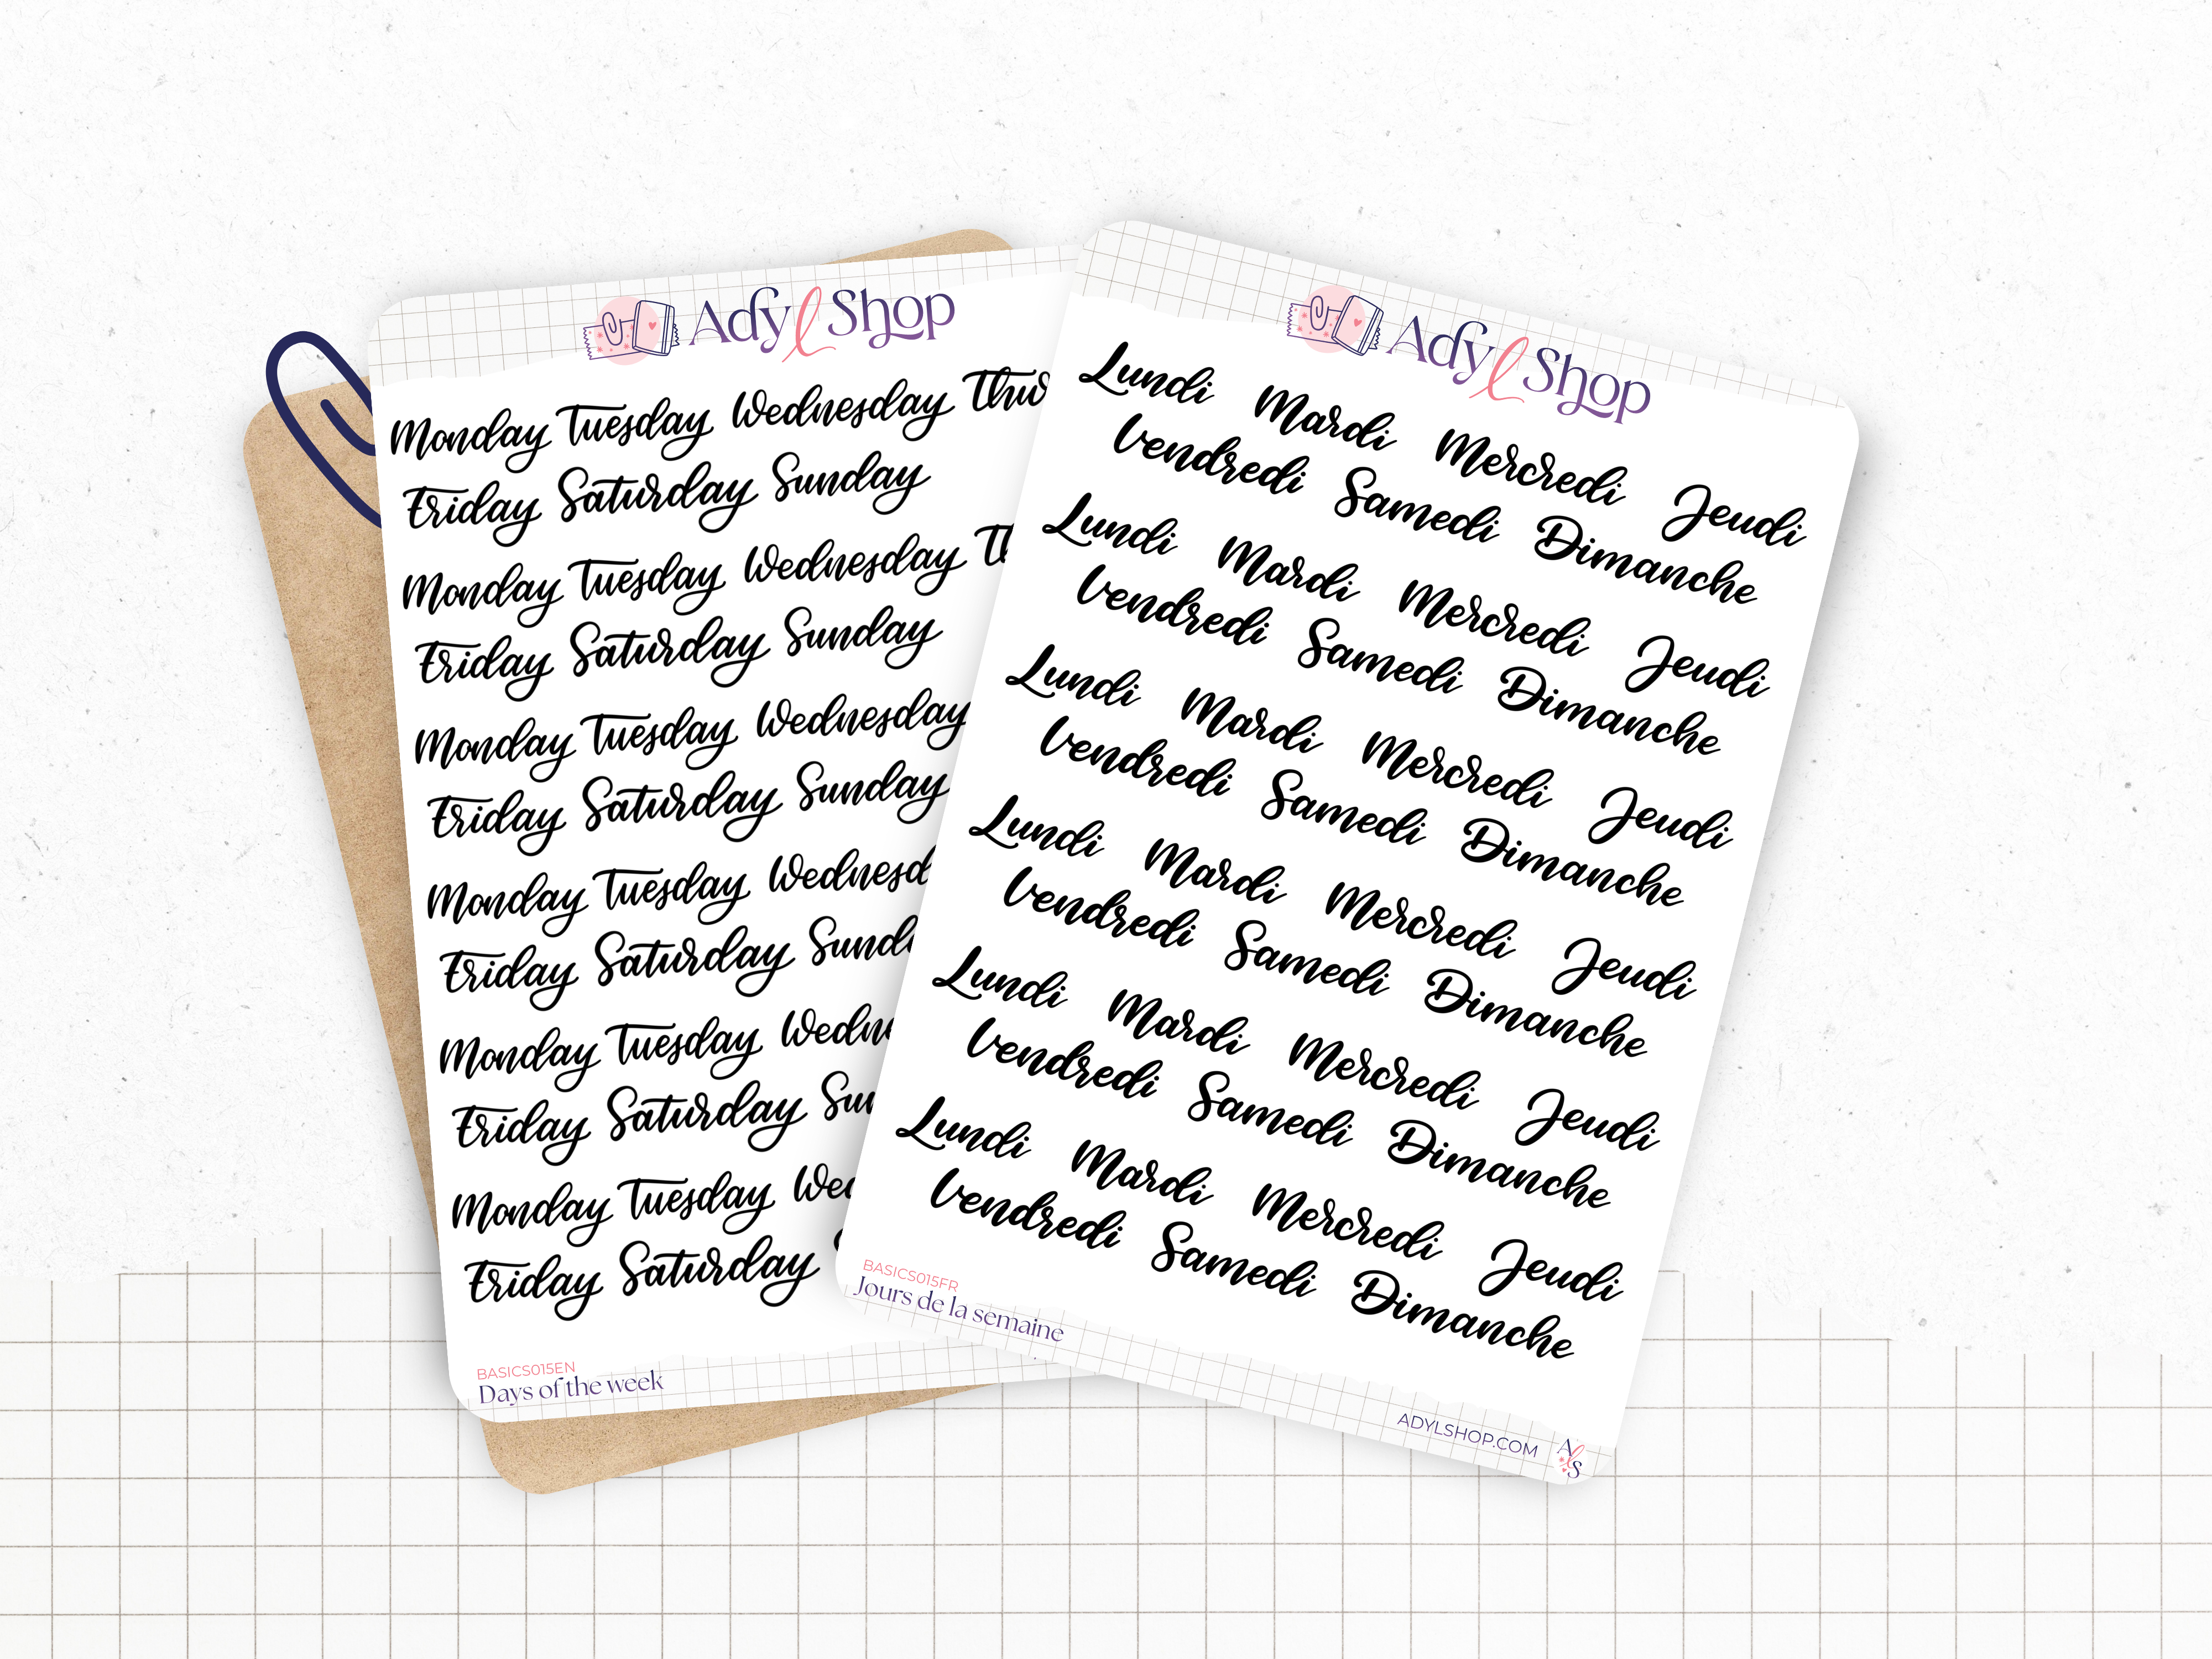 Adyl Shop
Monday Tuesday Wednesday
Friday Saturday Sunday
Monday Tuesday Wednesday
Friday Saturday Sunday
Monday Tuesday Wednesday
Friday Saturday Sunday
Monday Tuesday
Friday Saturday
Monday Tuesday
Friday Saturday
Monday Tuesday
Friday Saturday
BASICS015EN
Days of the week
Adyl Shop
Lundi Mardi Mercredi Jeudi
Vendredi Samedi Dimanche
Lundi Mardi Mercredi Jeudi
Vendredi Samedi Dimanche
Lundi Mardi Mercredi Jeudi
Vendredi Samedi Dimanche
Lundi Mardi Mercredi Jeudi
Vendredi Samedi Dimanche
Lundi Mardi Mercredi Jeudi
Vendredi Samedi Dimanche
Lundi Mardi Mercredi Jeudi
Vendredi Samedi Dimanche
BASICS015FR
Jours de la semaine
ADYLSHOP.COM
AlS